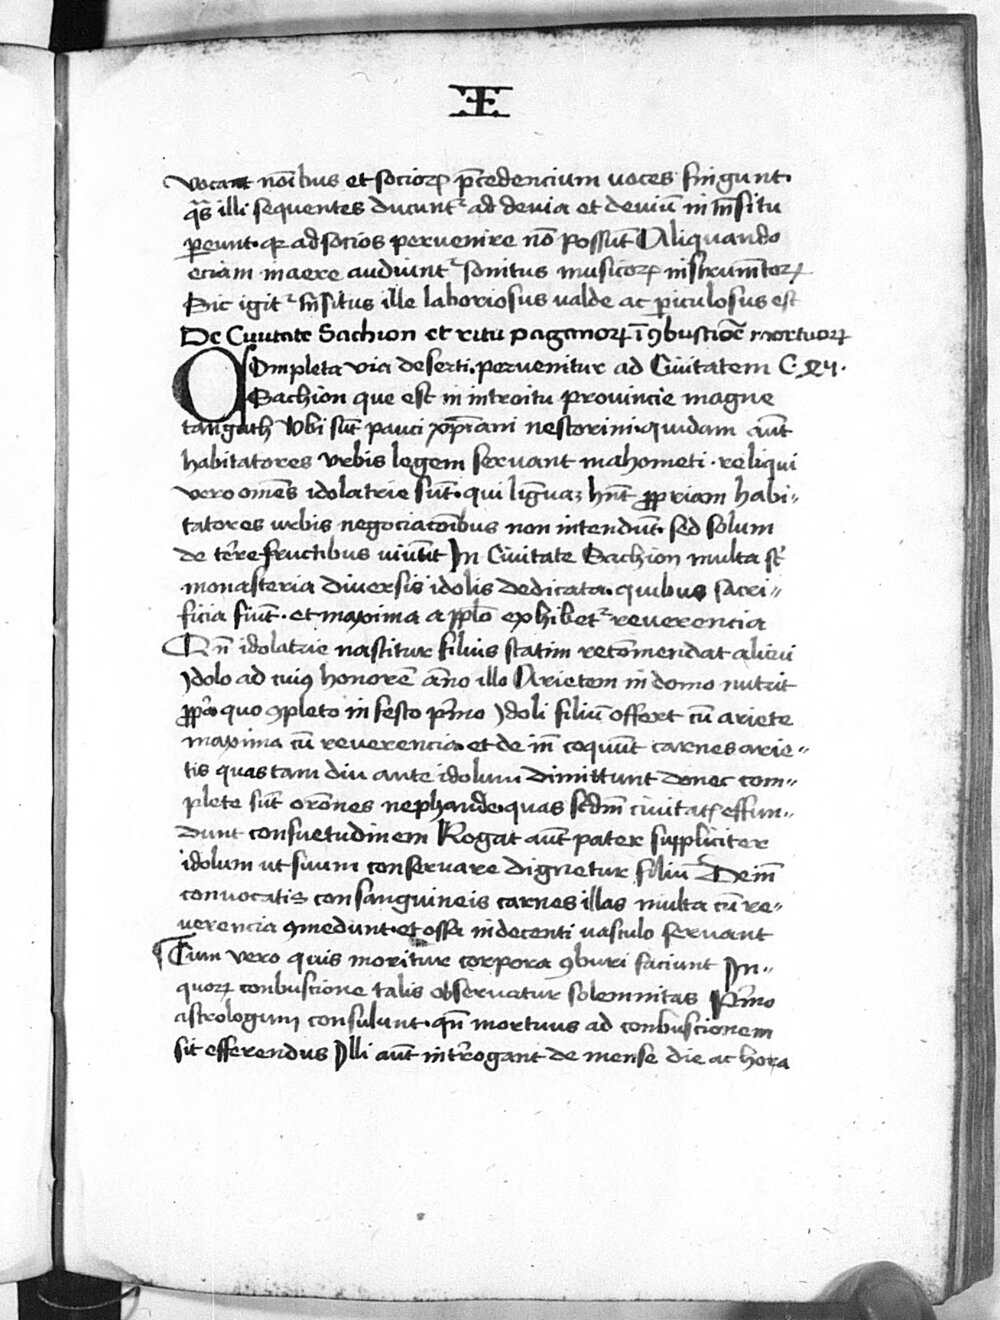 E
vocant noi̅bus et socioꝝ p̅cedencium voces fingunt.
qͣs illi sequentes ducunt᷑ ad devia et deviu̅ in tn̅situ
ꝑeunt. qꝛ ad socios pervenire no̅ possu̅t Aliquando
eciam in aere audiunt᷑ sonitus musicoꝝ instrum̅toꝝ
Sic igit᷑ tn̅situs ille laboriosus valde ac ꝑiculosus est
De Civitate Sachion et ritu paganoꝝ i̅ ꝯbustio̅e mortuoꝝ
COmpleta via deserti. pervenitur ad Civitatem C. xlv.
Sachion que est in introitu provincie magne
tanguth Vbi su̅t pauci xp̅iani nestorini. quidam au̅t
habitatores vrbis legem servant mahometi. reliqui
vero om̅es idolatrie su̅t. qui lingua̅ hn̅t ꝓpriam habi„
tatores urbis negociacoi̅bus non intendu̅t. sed solum
de t̅re fructibus vivu̅t In Civitate Sachion multa st̅
monasteria diversis idolis dedicata. quibus sacri„
ficia fiu̅t. et maxima a pp̅lo exhibet᷑ reverencia
Qn̅ idolatrie nascitur filius statim recomendat alicui
ydolo ad cuiꝯ honore̅ an̅o illo Arietem in domo nutrit
ꝓpͥa. quo ꝯpleto in festo pͥmo ydoli filiu̅ offert cu̅ ariete
maxima cu̅ reverencia. et dein̅ coquu̅t carnes arie„
tis quas tam diu ante idolum dimittunt donec com„
plete su̅t oro̅nes nephande. quas scd̅m civitatꝭ effun„
dunt consuetudinem Rogat au̅t pater suppliciter
idolum ut suum conservare dignetur filiu̅ Dein̅
convocatis consanguineis carnes illas multa cu̅ re„
verencia ꝯmedunt. et ossa in decenti vasculo servant
¶Cum vero quis moritur corpora ꝯburi faciunt In„
quoꝝ conbustione talis observatur solemnitas Pͥmo
astrologum consulunt. qn̅ mortuus ad conbustionem
sit efferendus Illi au̅t int̅rogant de mense die ac hora